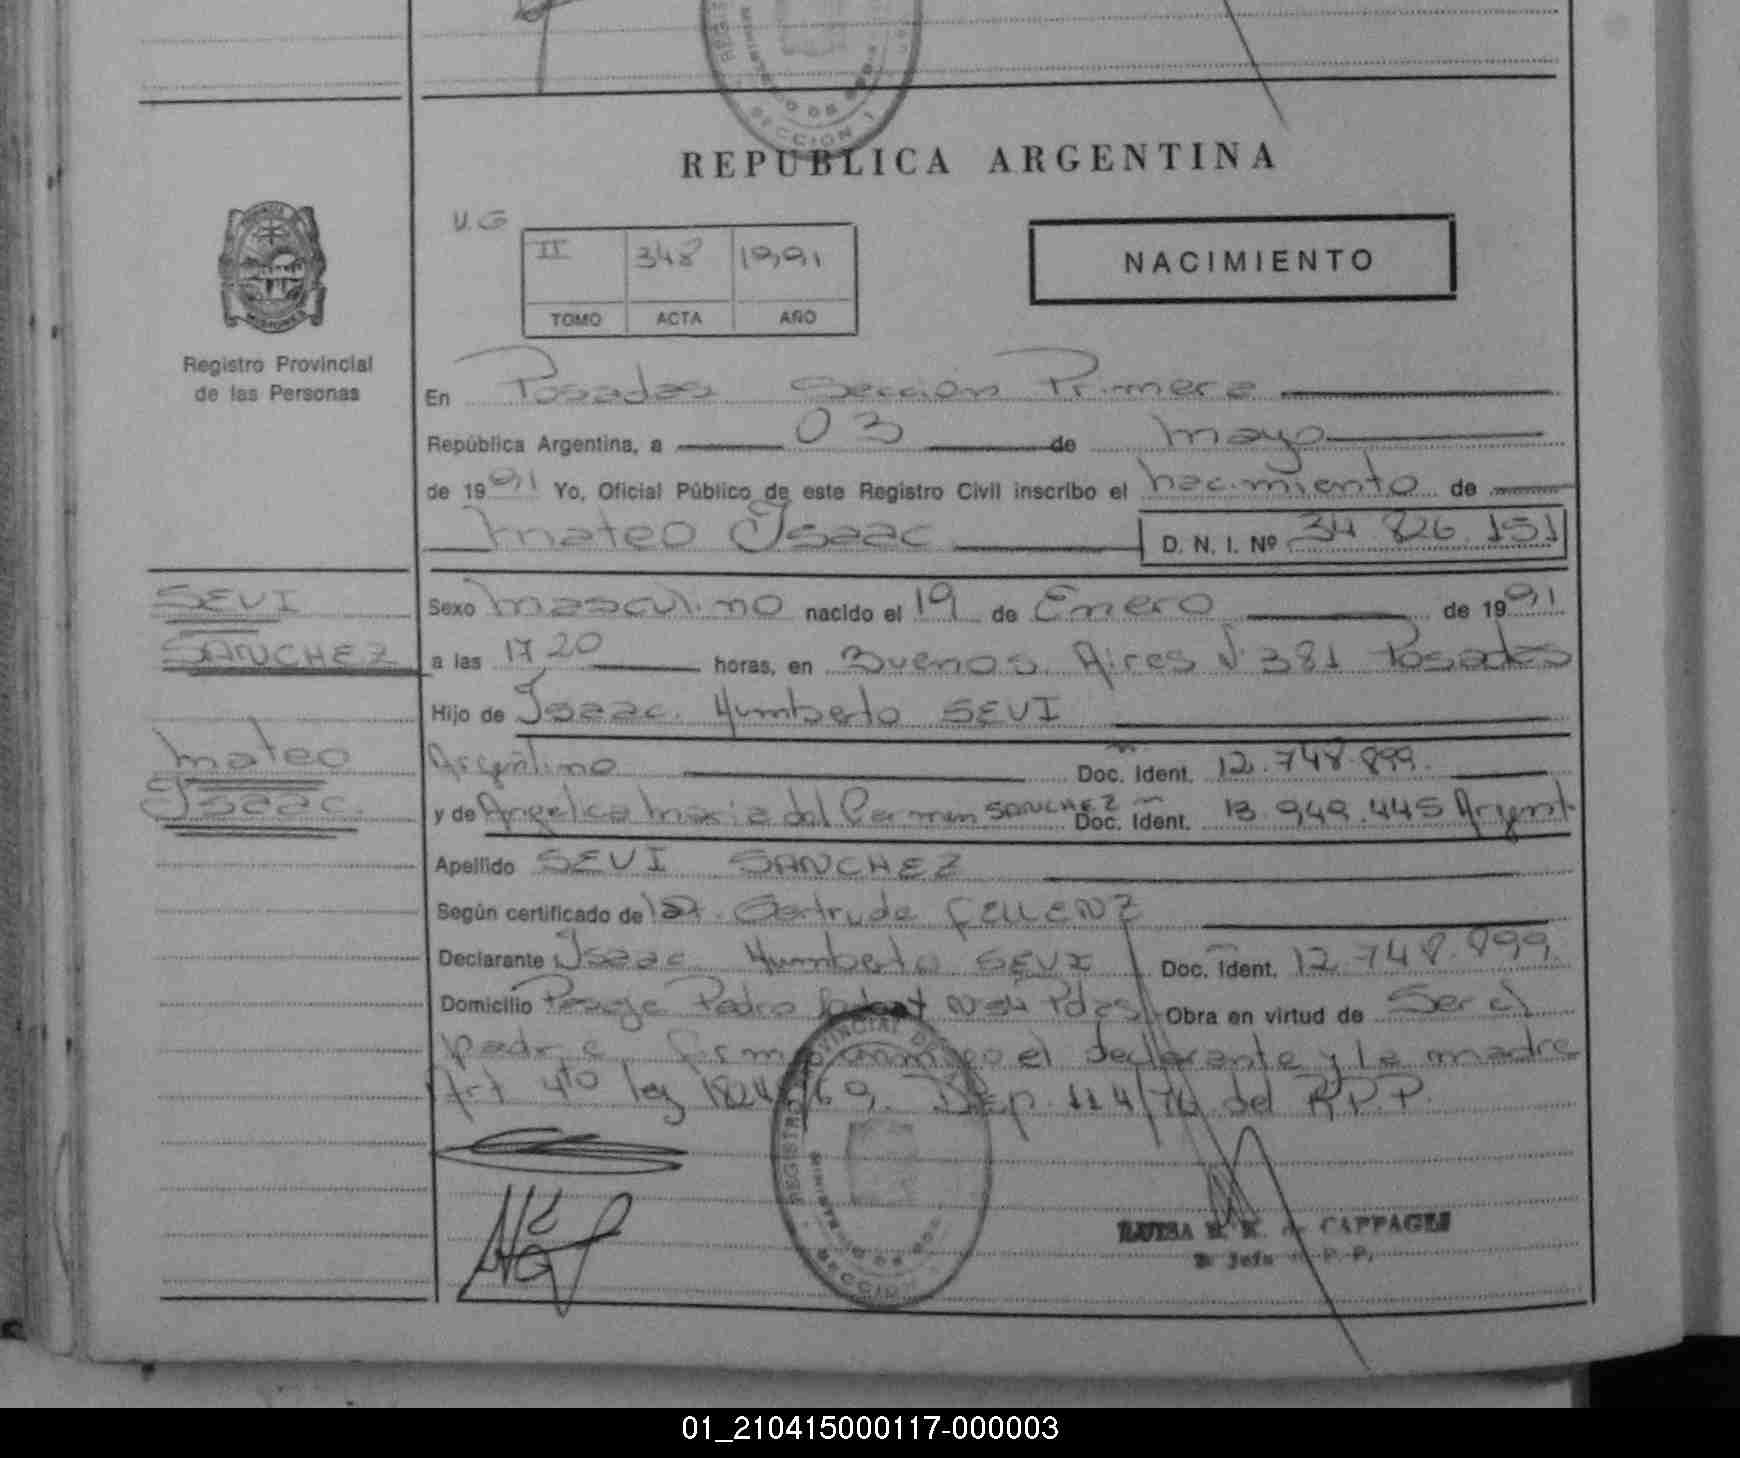 REPUBLICA ARGENTINA
V.G
II 348 1991
TOMO ACTA AÑO
NACIMIENTO
MISIONES
Registro Provincial
de las Personas
En Posadas Sección Primera
República Argentina, a 03 de mayo
de 1991 Yo, Oficial Público de este Registro Civil inscribo el nacimiento de
Mateo Isaac D. N. I. Nº 34 826.151
SEVI
SANCHEZ
Mateo
Isaac.
Sexo masculino nacido el 19 de Enero de 1991
a las 17 20 horas, en Buenos Aires Nº 381 Posadas
Hijo de Isaac Humberto SEVI
Argentino Doc. Ident. 12.748.899.
y de Angelica Maria del Carmen SANCHEZ Doc. Ident. 13.949.445 Argent.
Apellido SEVI SANCHEZ
Según certificado de Gertrude
Declarante Isaac Humberto SEVI Doc. Ident. 12.748.899.
Domicilio Pasaje Pedro Pdas Obra en virtud de Ser el
padre. firma conmigo el declarante y la madre
Art 4to ley 18248/69. Disp. 114/76 del R.P.P.
SECCION 1
CAPPAGLI
Jefe R. P. P.
01_210415000117-000003